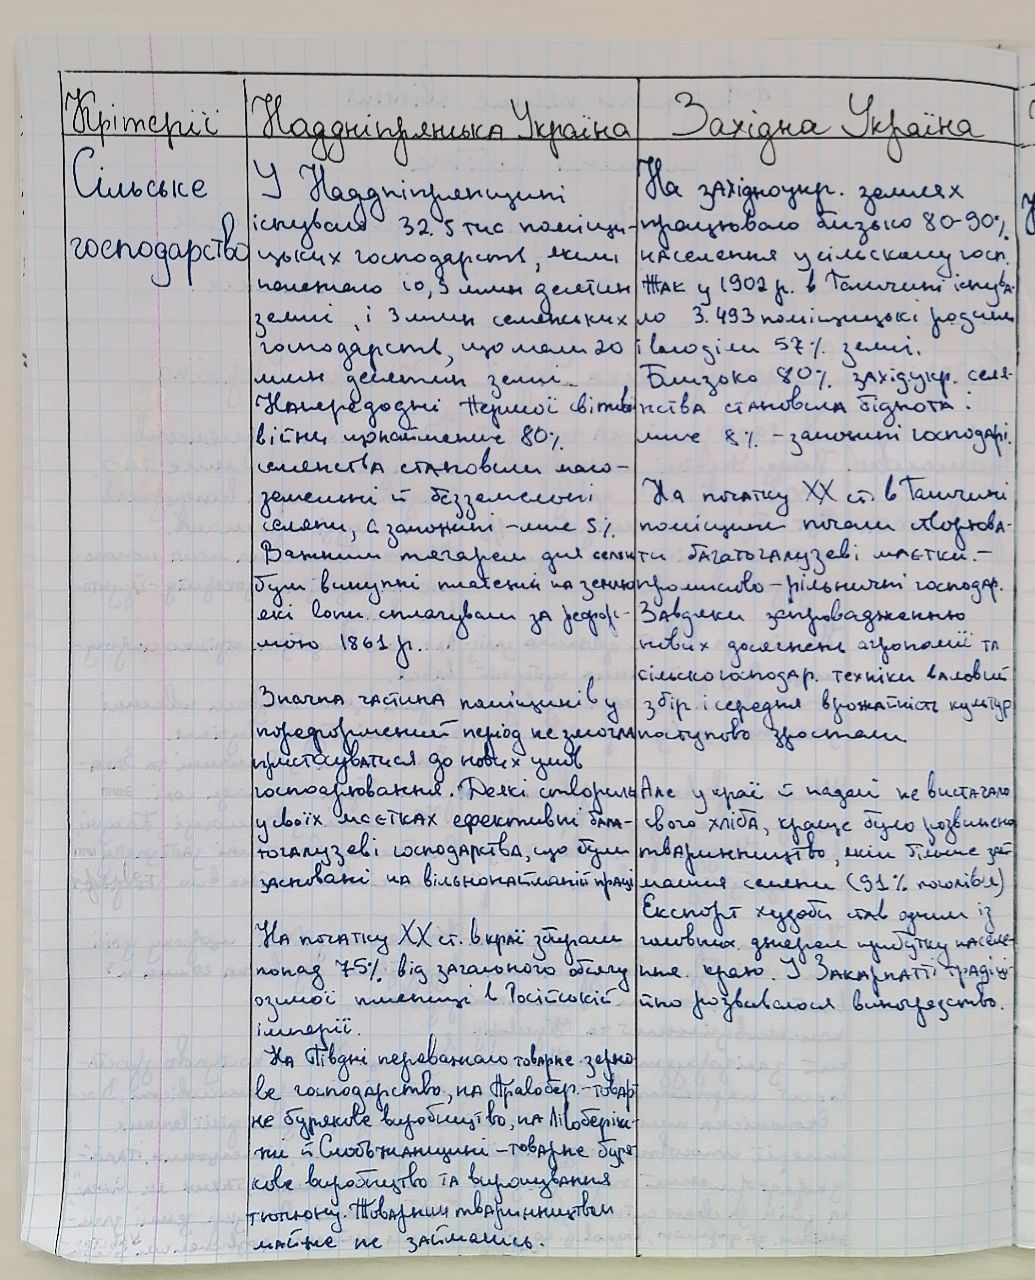 Крітерії
Наддніпрянська Україна
Західна Україна
Сільське
господарство
У Наддніпрянщині
існувало 32.5 тис. поміщи-
цьких господарств, яким
належало 10,3 млн десятин
землі, і 3 млн селянських
господарств, що мали 20
млн десятин землі.
Напередодні Першої світової
війни щонайменше 80%
селянства становили мало-
земельні й безземельні
селяни, а заможні - лише 5%.
Важким тягарем для селян
були викупні платежі на землю
які вони сплачували за рефор-
мою 1861 р.
Значна частина поміщиків у
пореформений період не змогла
пристосуватися до нових умов
господарювання. Деякі створили
у своїх маєтках ефективні бага-
тогалузеві господарства, що були
засновані на вільнонайманій праці
На початку XX ст. в краї збирали
понад 75% від загального обсягу
озимої пшениці в Російській
імперії.
На Півдні переважало товарне зерно-
ве господарство, на Правобер. - товар
не бурякове виробництво, на Лівобереж-
жі й Слобожанщині - товарне буря-
кове виробництво та вирощування
тютюну. Товарним тваринництвом
майже не займались.
На західноукр. землях
працювало близько 80-90%
населення у сільскому госп.
Так у 1902 р. в Галичині існува-
ло 3.493 поміщицькі родини
і володіли 57% землі.
Близоко 80% західукр. селя-
нства становила біднота:
лише 8% - заможні господарі.
На початку XX ст. в Галичині
поміщики почали створюва-
ти багатогалузеві маєтки. -
промислово - рільничні господар.
Завдяки запровадженню
нових досягнень агрономії та
сільскогосподар. техніки валовий
збір і середня врожайність культур
поступово зростали
Але у краї й надалі не вистачало
свого хліба, краще було розвинено
тваринництво, яким більше зай
мались селяни (91% поголівя)
Експорт худоби став одним із
головних джерел прибутку населе-
ння краю. У Закарпатті традиці-
йно розвивалося виноградство.